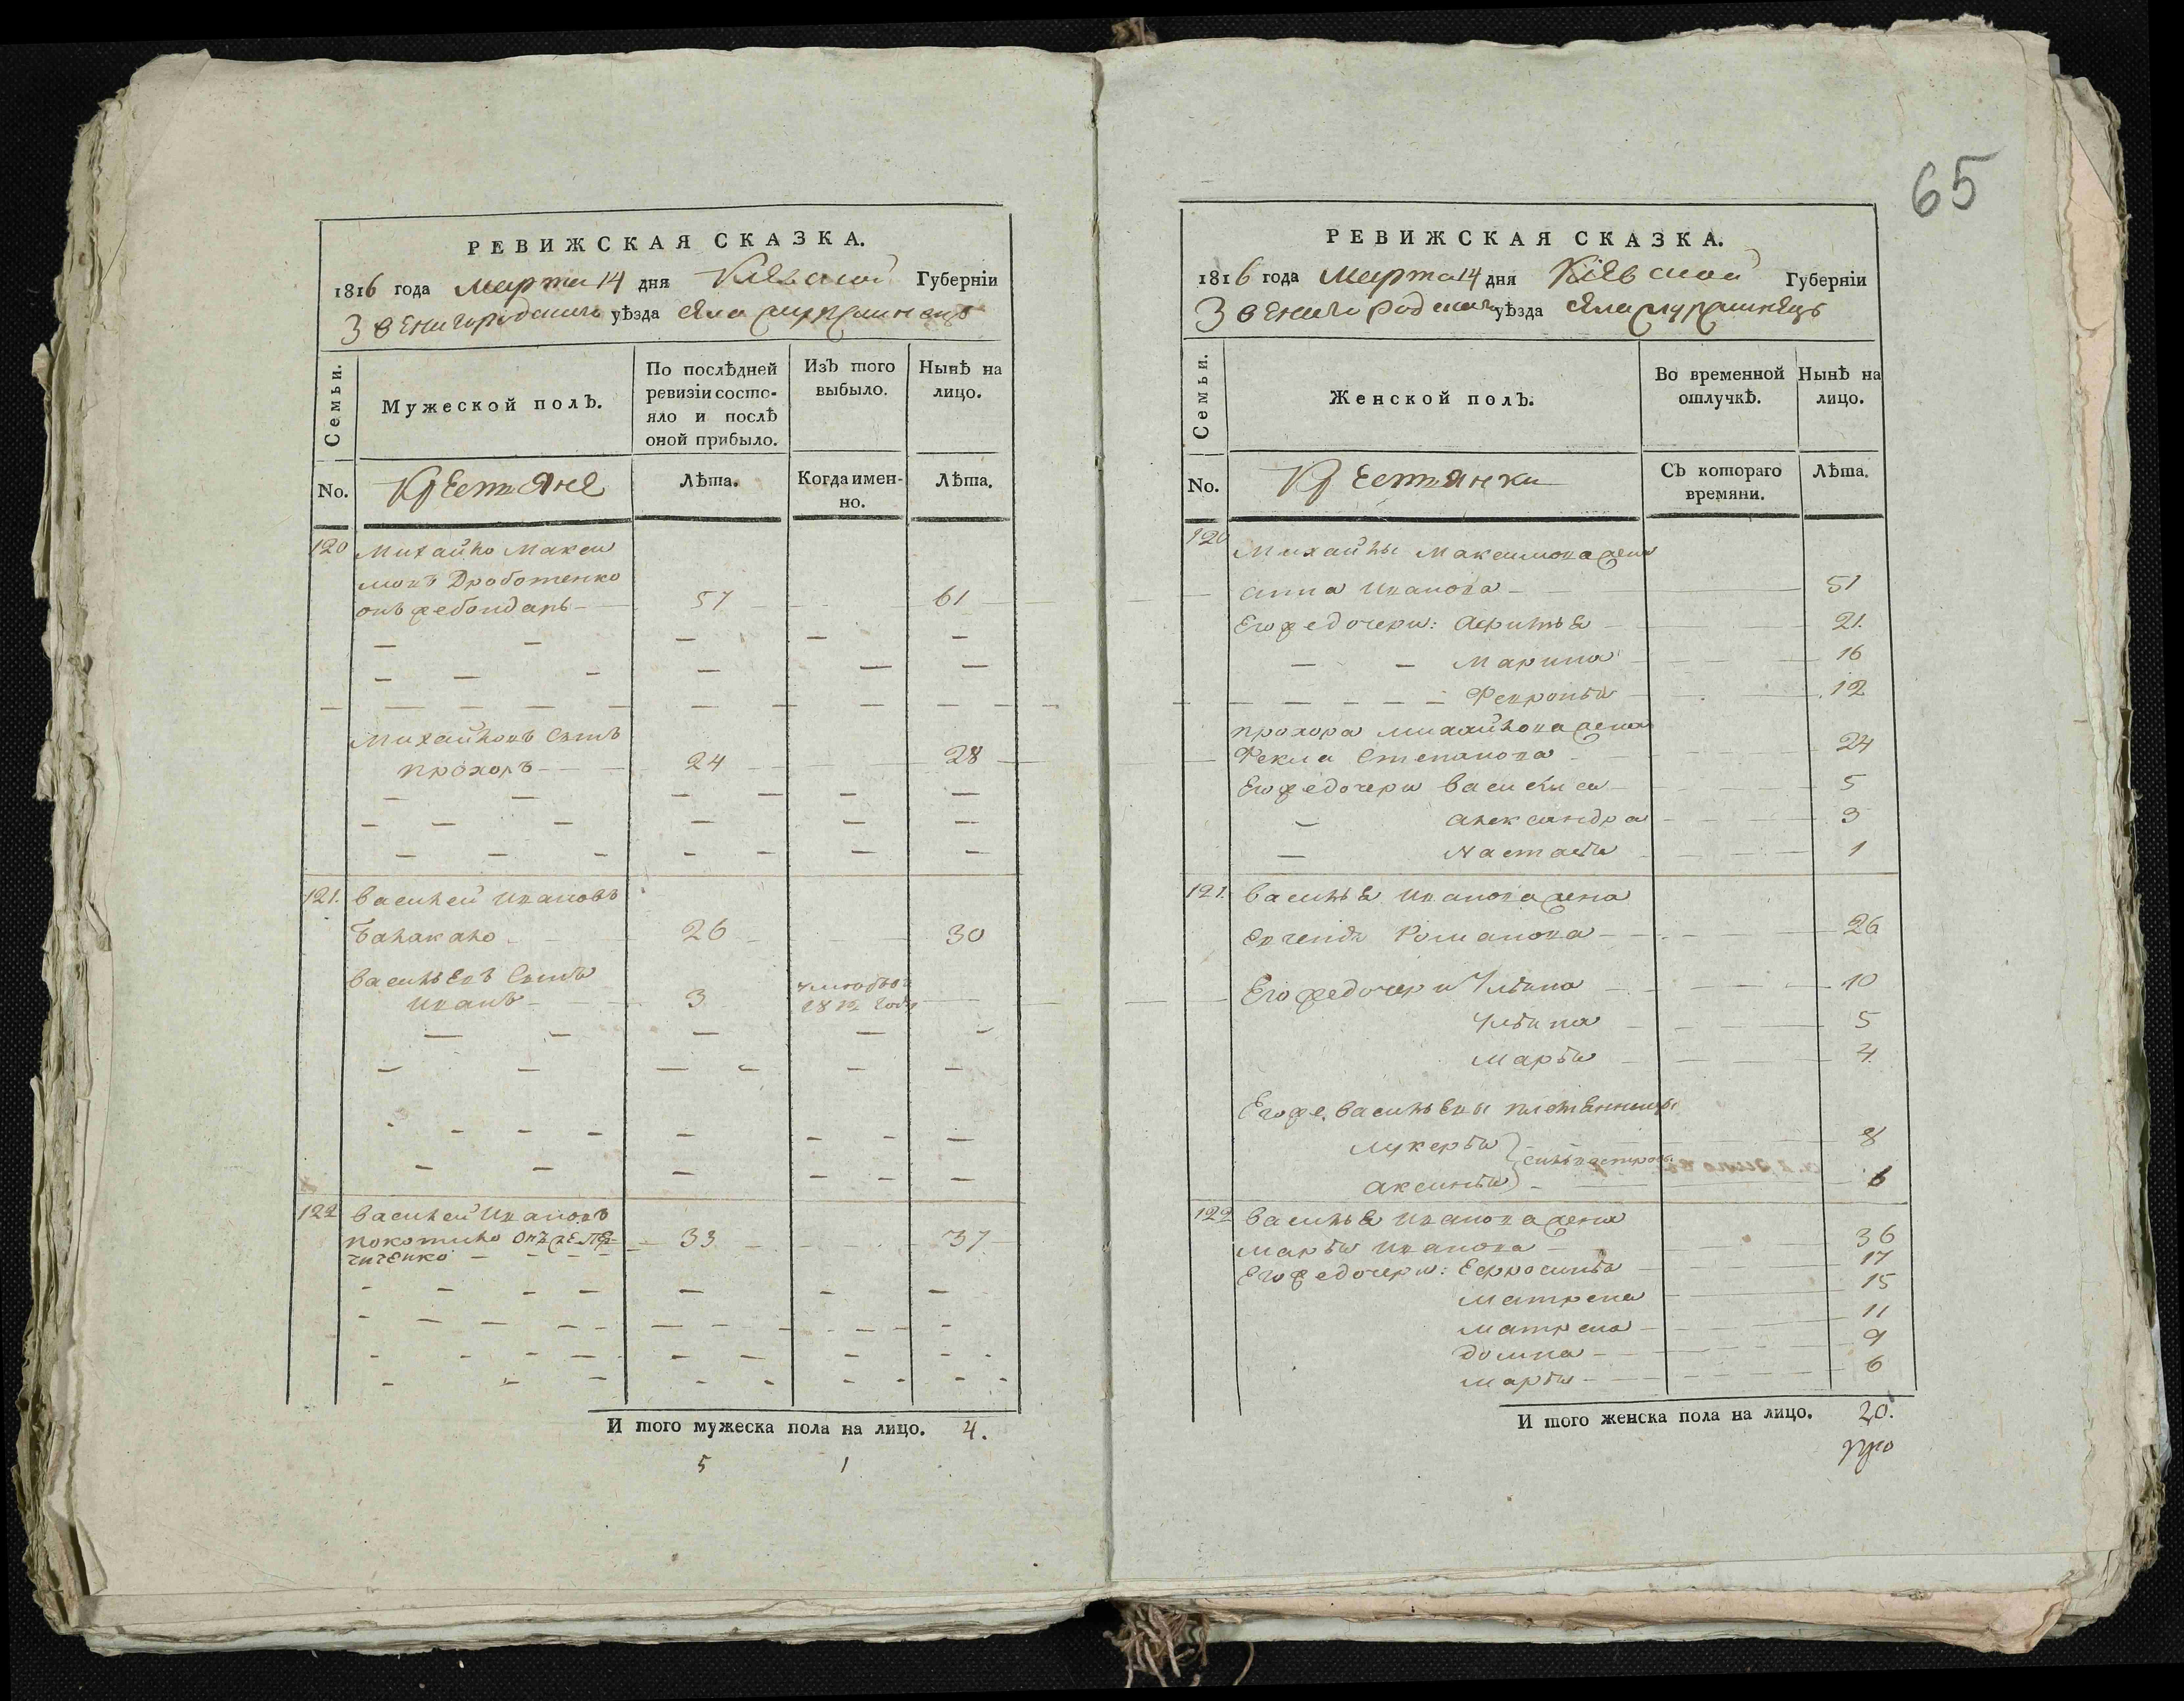 65
РЕВИЖСКАЯ СКАЗКА.
1816 года марта 14 дня Кіевской Губерніи
Звенигородского уѣзда села
Семьи.
Мужеской полЪ.
По послѣдней ревизіи состояло и послѣ оной прибыло.
ИзЪ того выбыло.
Нынѣ на лицо.
No.
Крестяне
Лѣта.
Когда именно.
Лѣта.
120 Михайло Макси
мовъ Дроботенко
онъ же бондарь 57 61
Михайловъ сынъ
Прохоръ 24 28
121. Василей Ивановъ
Балакало 26 30
Васильевъ сынъ
Иванъ 3 года
122 Василей Ивановъ
Покотило онъ же
33 37
И того мужеска пола на лицо. 4.
5 1
РЕВИЖСКАЯ СКАЗКА.
1816 года марта 14 дня Кіевской Губерніи
Звенигородского уѣзда села
Семьи.
Женской полЪ.
Во временной отлучкѣ.
Нынѣ на лицо.
No.
Крестянки
СЪ котораго времяни.
Лѣта.
120 Михайлы Максимова жена
Анна Иванова 51
Его же дочери: 21.
Марина 16
Февронья 12
Прохора Михайлова жена
Фекла Степанова 24
Его же дочери Василиса 5
Александра 3
Настасья 1
121. Василья Иванова жена
Романова 26
Его же дочери Ульяна 10
Ульяна 5
Марья 4
Его же Васильевы племянницы
Лукерья 8
Аксинья 6
122 Василья Иванова жена
Марья Иванова 36
Его же дочери: Ефросинья 17
Матрена 15
Матрена 11
Домна 9
Марья 6
И того женска пола на лицо. 20.